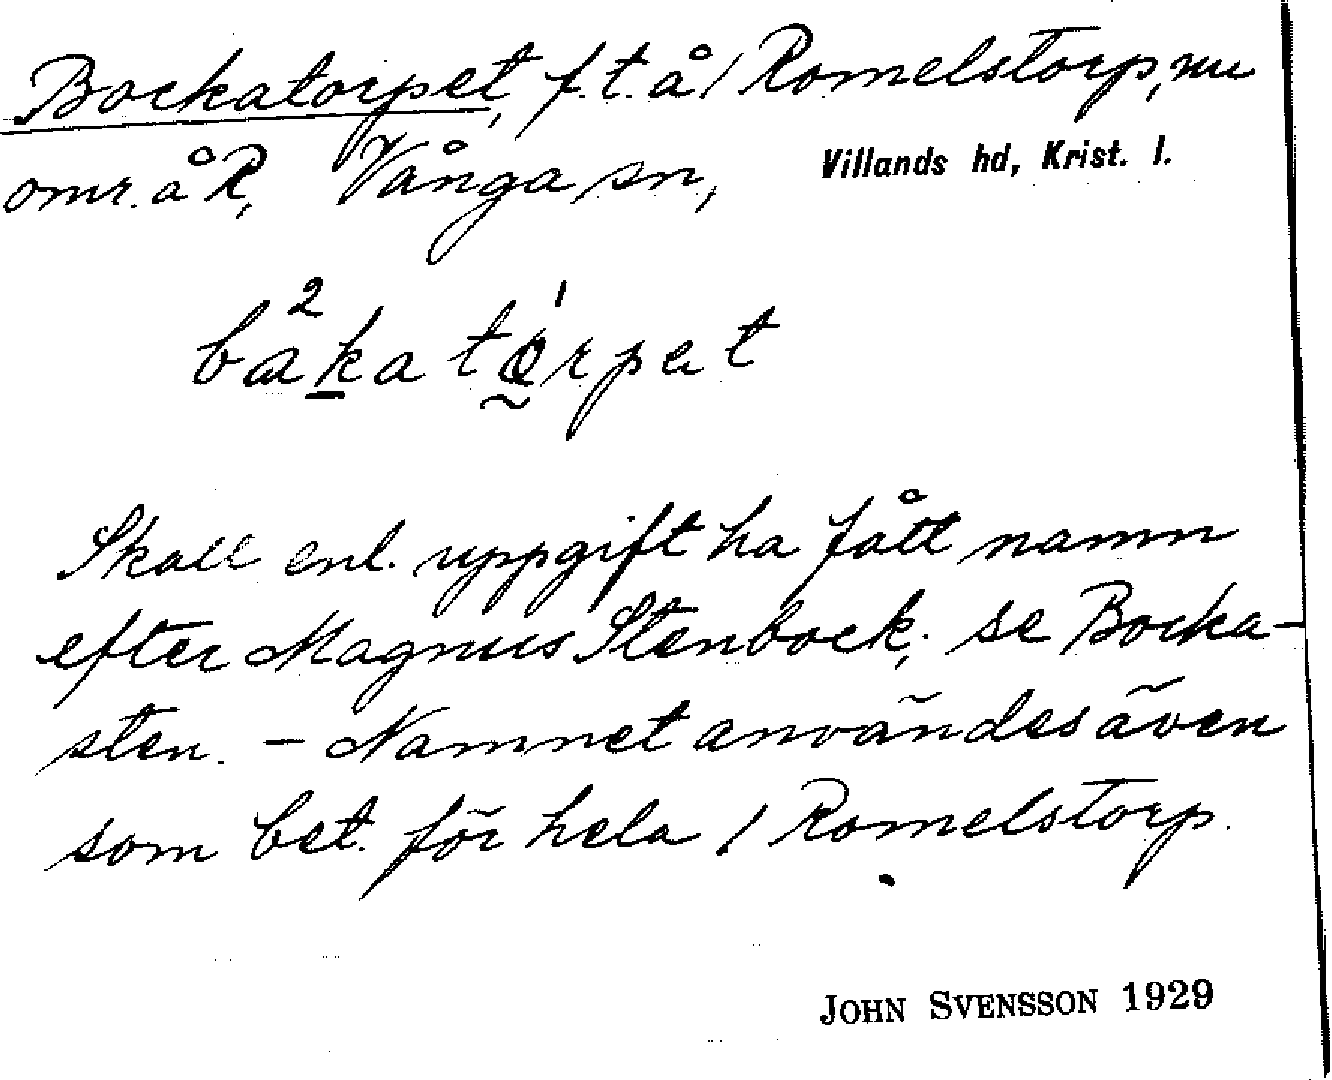 Bockatorpet, f.t. å 1 Romelstorp, nu
omr. å R, Vånga sn, Villands hd, Krist. l.
Skall enl. uppgift ha fått namn
efter Magnus Stenbock; se Bocka-
sten. - Namnet användes även
som bet. för hela 1 Romelstorp.
JOHN SVENSSON 1929